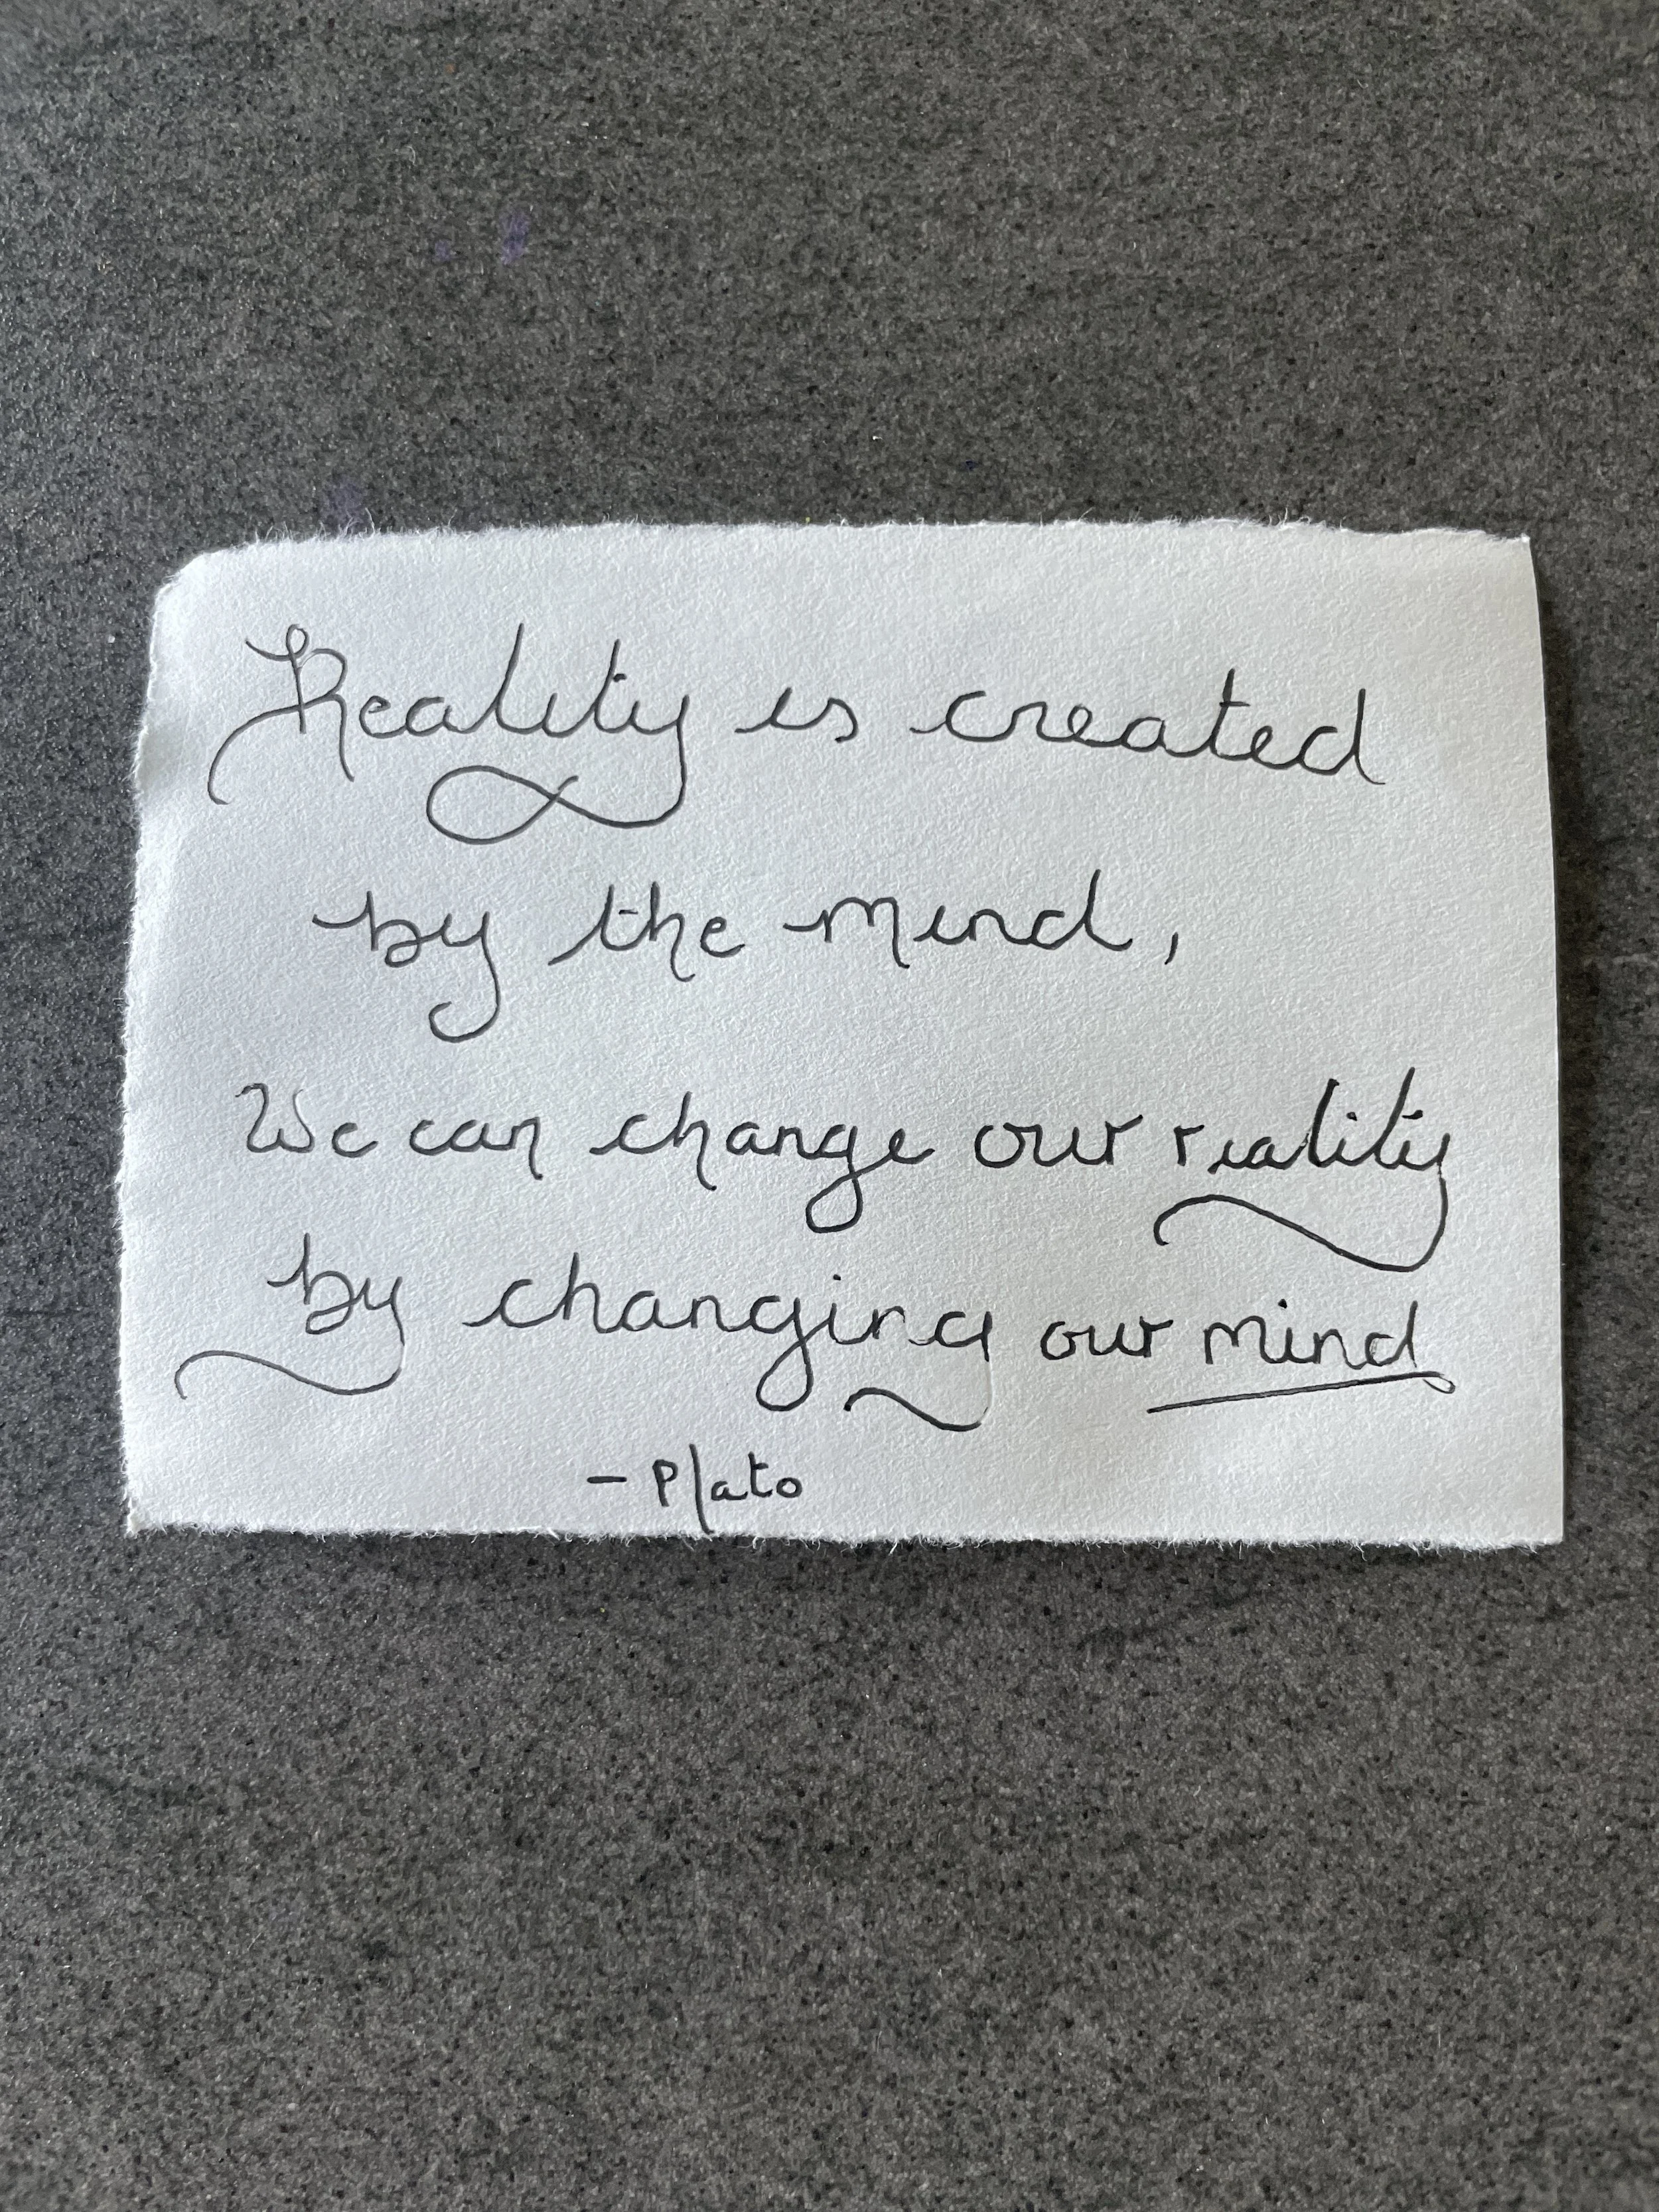 Reality is created
by the mind,
We can change our reality
by changing our mind
- Plato